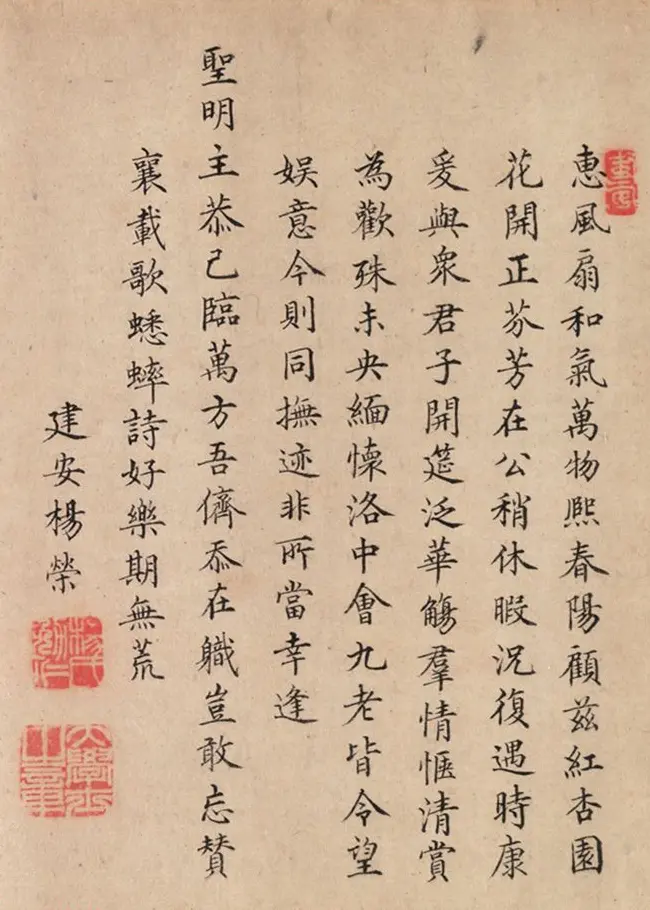 惠風扇和氣萬物熙春陽顧茲紅杏園
花開正芬芳在公稍休暇況復遇時康
爰與衆君子開筵泛華觴羣情愜清賞
為歡殊未央緬懷洛中會九老皆令望
娱意今則同撫迹非所當幸逢
聖明主恭己臨萬方吾儕忝在軄豈敢忘賛
襄載歌蟋蟀詩好樂期無荒
建安楊榮